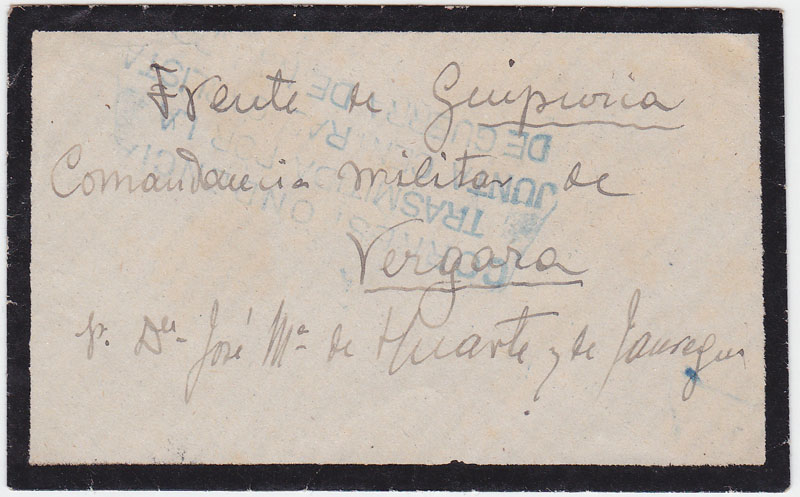 Frente de Guipuzcoa
Comandancia militar de
Vergara
Sr. Dn José Mª de Huarte y de Jauregui
CORRESPONDENCIA
TRASMITIDA POR LA
JUNTA
DE GUERRA